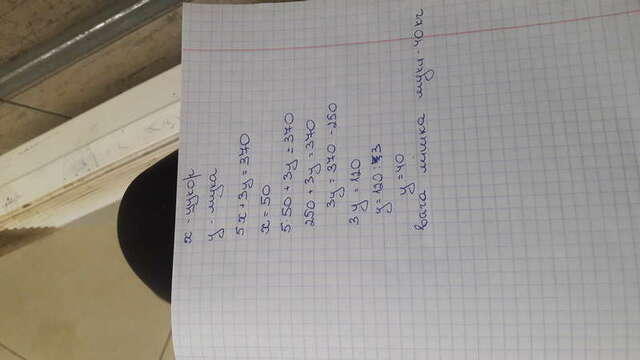 x - цукор
y - мука
5x + 3y = 370
x = 50
5·50 + 3y = 370
250 + 3y = 370
3y = 370 - 250
3y = 120
y = 120 : 3
y = 40
вага мішка муки - 40 кг